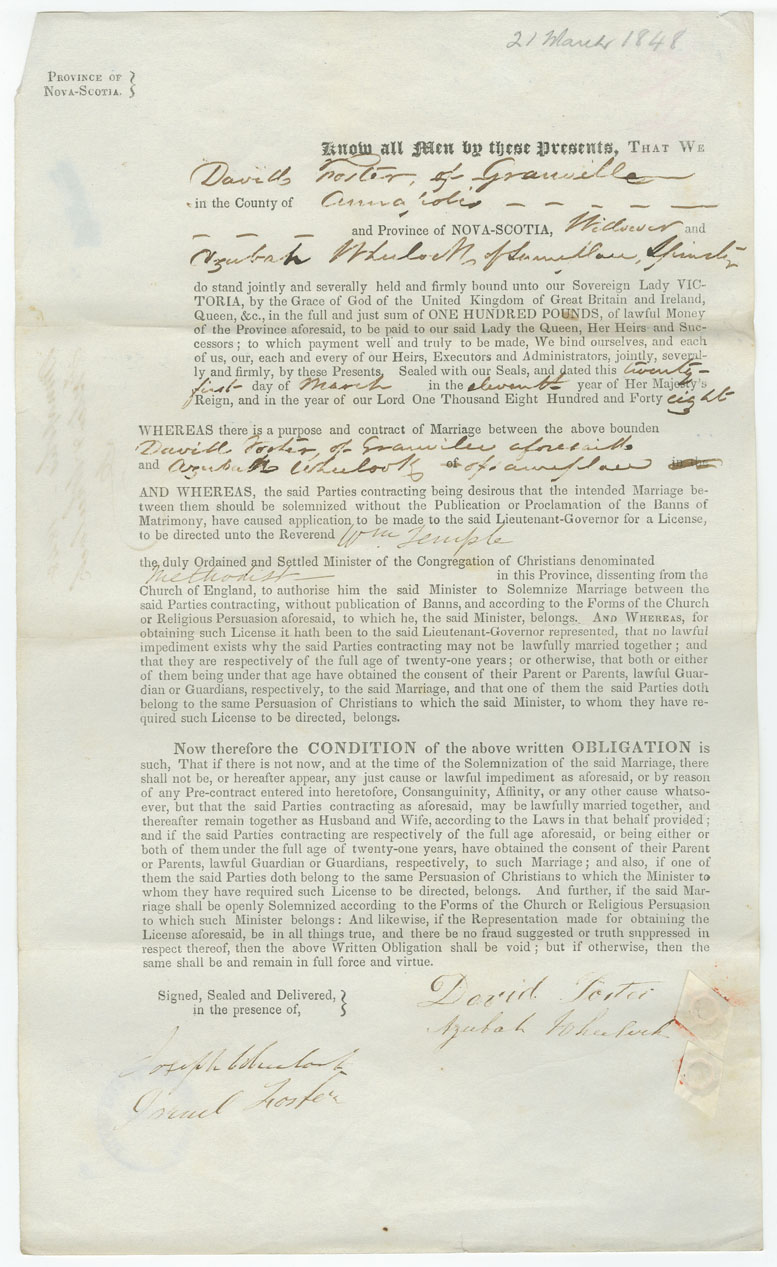 21 March 1848
PROVINCE OF
NOVA-SCOTIA.
Know all Men by these Presents, THAT WE
David Foster, of Granville
in the County of Annapolis
and Province of NOVA-SCOTIA, Widower and
Azubah Wheelock, of same place, Spinster
do stand jointly and severally held and firmly bound unto our Sovereign Lady VIC-
TORIA, by the Grace of God of the United Kingdom of Great Britain and Ireland,
Queen, &c., in the full and just sum of ONE HUNDRED POUNDS, of lawful Money
of the Province aforesaid, to be paid to our said Lady the Queen, Her Heirs and Suc-
cessors; to which payment well and truly to be made, We bind ourselves, and each
of us, our, each and every of our Heirs, Executors and Administrators, jointly, several-
ly and firmly, by these Presents, Sealed with our Seals, and dated this twenty-
first day of March in the eleventh year of Her Majesty's
Reign, and in the year of our Lord One Thousand Eight Hundred and Forty eight
WHEREAS there is a purpose and contract of Marriage between the above bounden
David Foster, of Granville aforesaid
and Azubah Wheelock of of same place in
AND WHEREAS, the said Parties contracting being desirous that the intended Marriage be-
tween them should be solemnized without the Publication or Proclamation of the Banns of
Matrimony, have caused application to be made to the said Lieutenant-Governor for a License,
to be directed unto the Reverend Wm Temple
the duly Ordained and Settled Minister of the Congregation of Christians denominated
Methodist in this Province, dissenting from the
Church of England, to authorise him the said Minister to Solemnize Marriage between the
said Parties contracting, without publication of Banns, and according to the Forms of the Church
or Religious Persuasion aforesaid, to which he, the said Minister, belongs. AND WHEREAS, for
obtaining such License it hath been to the said Lieutenant-Governor represented, that no lawful
impediment exists why the said Parties contracting may not be lawfully married together; and
that they are respectively of the full age of twenty-one years; or otherwise, that both or either
of them being under that age have obtained the consent of their Parent or Parents, lawful Guar-
dian or Guardians, respectively, to the said Marriage, and that one of them the said Parties doth
belong to the same Persuasion of Christians to which the said Minister, to whom they have re-
quired such License to be directed, belongs.
Now therefore the CONDITION of the above written OBLIGATION is
such, That if there is not now, and at the time of the Solemnization of the said Marriage, there
shall not be, or hereafter appear, any just cause or lawful impediment as aforesaid, or by reason
of any Pre-contract entered into heretofore, Consanguinity, Affinity, or any other cause whatso-
ever, but that the said Parties contracting as aforesaid, may be lawfully married together, and
thereafter remain together as Husband and Wife, according to the Laws in that behalf provided;
and if the said Parties contracting are respectively of the full age aforesaid, or being either or
both of them under the full age of twenty-one years, have obtained the consent of their Parent
or Parents, lawful Guardian or Guardians, respectively, to such Marriage; and also, if one of
them the said Parties doth belong to the same Persuasion of Christians to which the Minister to
whom they have required such License to be directed, belongs. And further, if the said Mar-
riage shall be openly Solemnized according to the Forms of the Church or Religious Persuasion
to which such Minister belongs: And likewise, if the Representation made for obtaining the
License aforesaid, be in all things true, and there be no fraud suggested or truth suppressed in
respect thereof, then the above Written Obligation shall be void; but if otherwise, then the
same shall be and remain in full force and virtue.
Signed, Sealed and Delivered,
in the presence of,
David Foster
Azubah Wheelock
Joseph Wheelock
Israel Foster